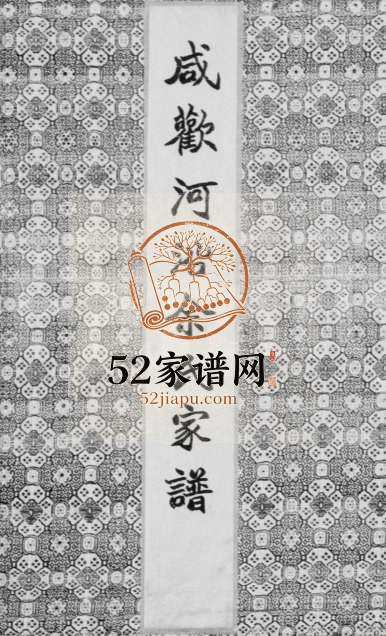 咸歡河沿余氏家譜
52家谱网
52jiapu.com